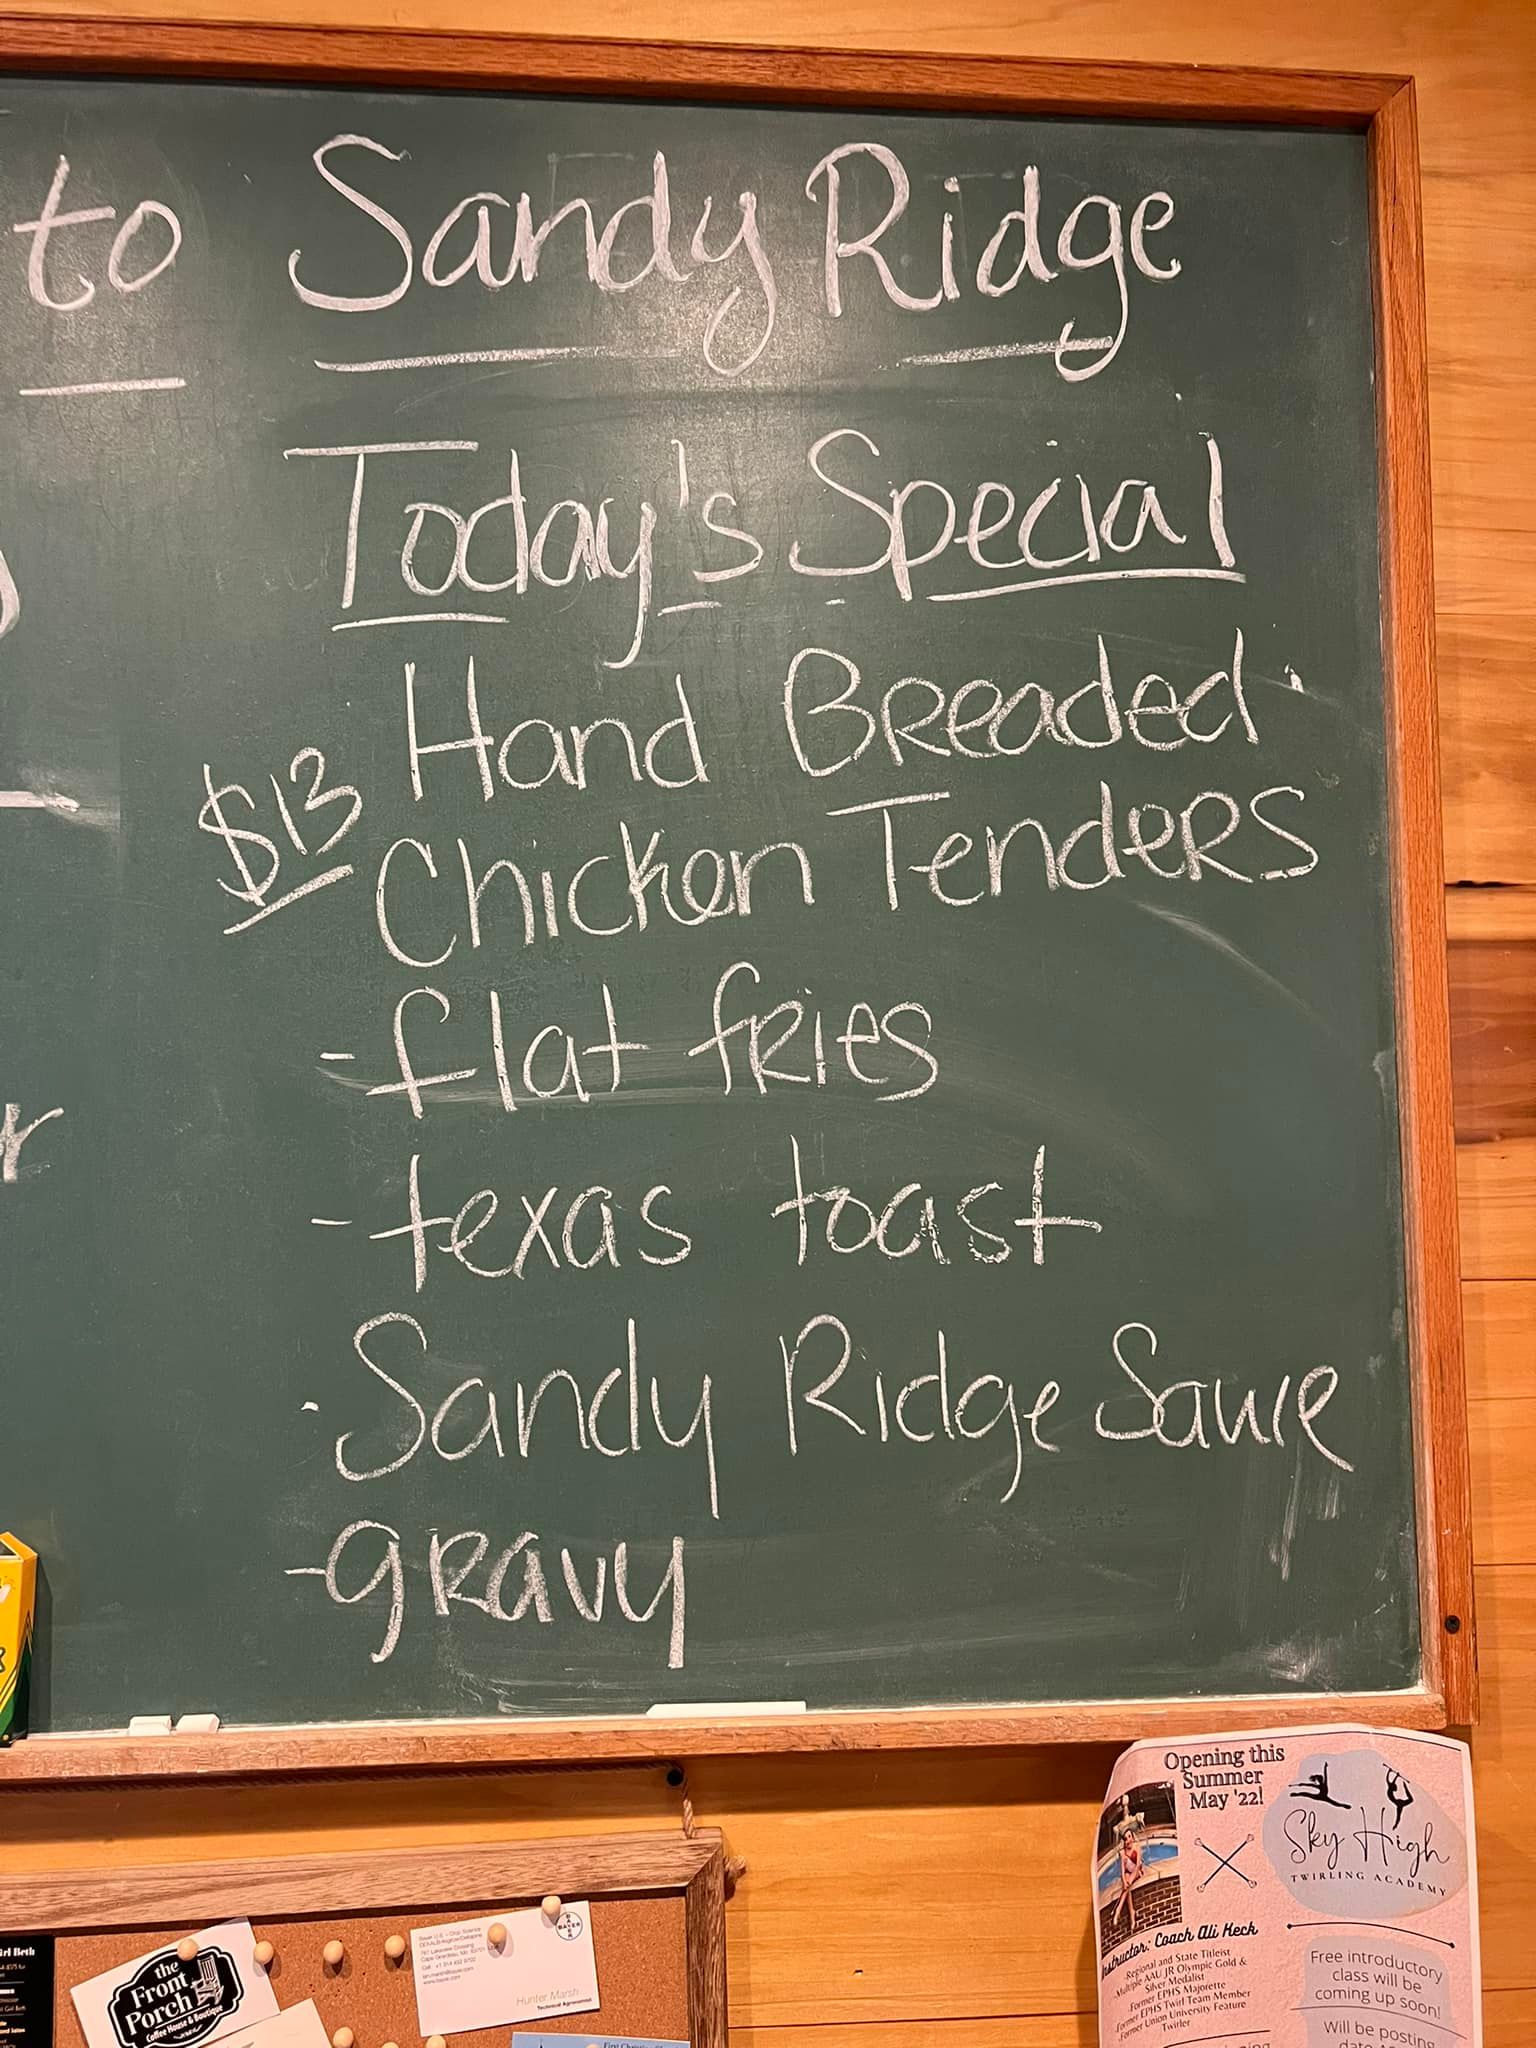 to Sandy Ridge
Today's Special
$13
Hand Breaded
Chicken Tenders
-flat fries
-texas toast
·Sandy Ridge Sauce
-gravy
Opening this
Summer
May '22!
Sky High
TWIRLING ACADEMY
Instructor: Coach Ali Heck
-Regional and State Titleist
-Multiple AAU JR Olympic Gold &
Silver Medalist
-Former EPHS Majorette
-Former EPHS Twirl Team Member
-Former Union University Feature
Twirler
Free introductory
class will be
coming up soon!
Will be posting
the
Front
Porch
Coffee House & Boutique
Bayer U.S. – Crop Science
Cape Girardeau, Mo
www.bayer.com
BAYER
Hunter Marsh
Technical Agronomist
Girl Beth